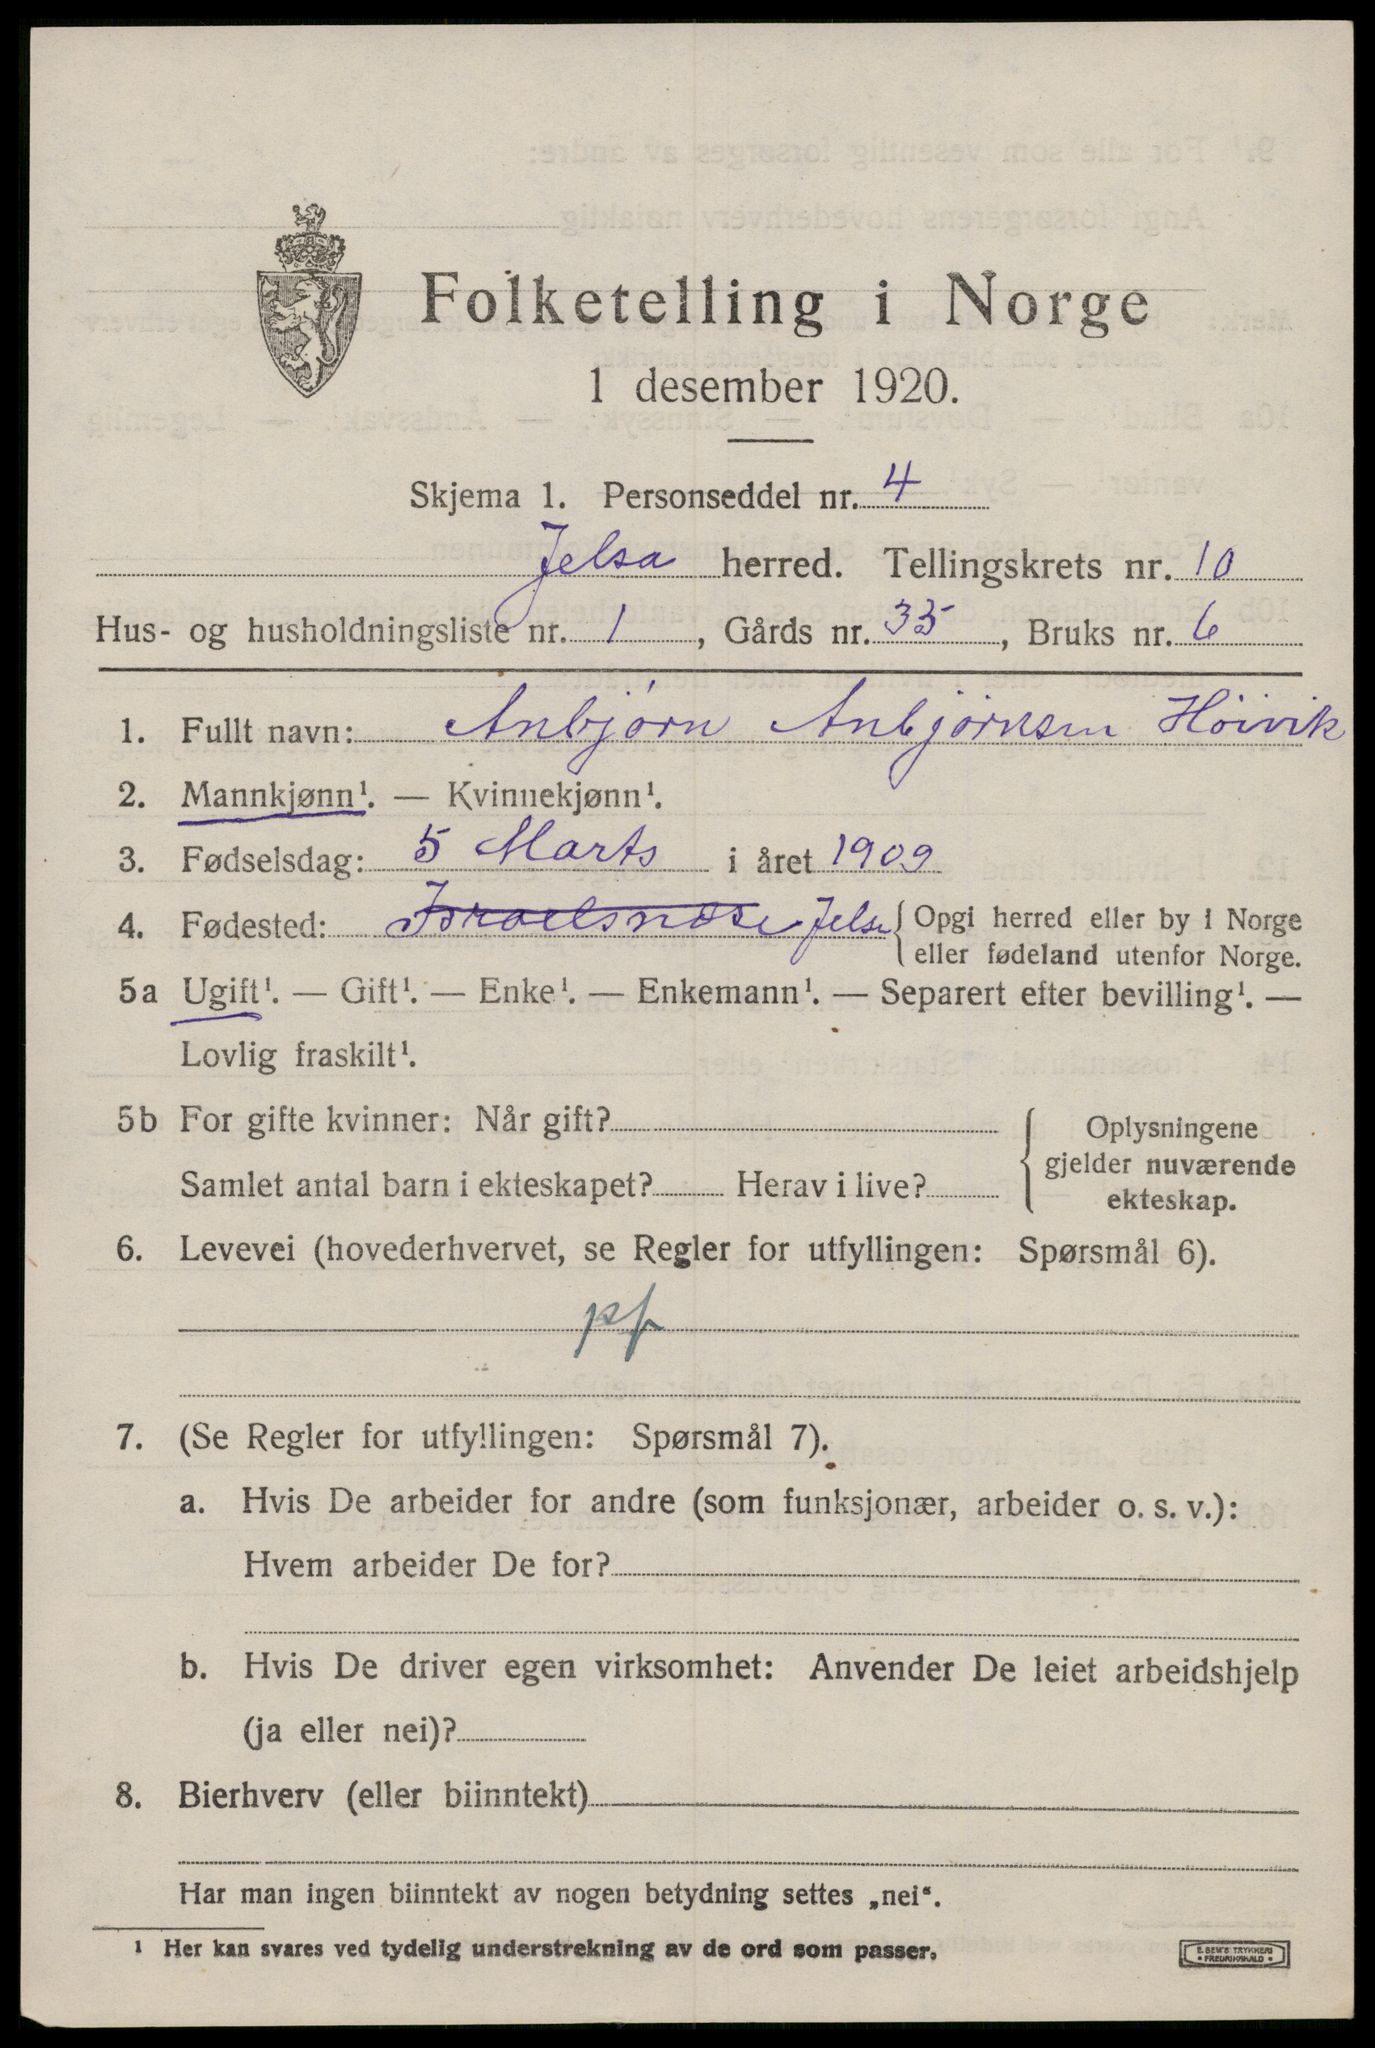 Folketelling i Norge
1 desember 1920.
Skjema 1. Personseddel nr. 4
Jelsa herred. Tellingskrets nr. 10
Hus- og husholdningsliste nr. 1, Gårds nr. 35, Bruks nr. 6
1. Fullt navn: Anbjørn Anbjørnsen Höivik
2. Mannkjønn¹. — Kvinnekjønn¹.
3. Fødselsdag: 5 Marts i året 1909
4. Fødested: Israelsnæse Jelsa { Opgi herred eller by i Norge
eller fødeland utenfor Norge.
5a Ugift¹. — Gift¹. — Enke¹. — Enkemann¹. — Separert efter bevilling¹. —
Lovlig fraskilt¹.
5b For gifte kvinner: Når gift?
Samlet antal barn i ekteskapet? Herav i live?
{ Oplysningene
gjelder nuværende
ekteskap.
6. Levevei (hovederhvervet, se Regler for utfyllingen: Spørsmål 6).
pf
7. (Se Regler for utfyllingen: Spørsmål 7).
a. Hvis De arbeider for andre (som funksjonær, arbeider o. s. v.):
Hvem arbeider De for?
b. Hvis De driver egen virksomhet: Anvender De leiet arbeidshjelp
(ja eller nei)?
8. Bierhverv (eller biinntekt)
Har man ingen biinntekt av nogen betydning settes „nei“.
¹ Her kan svares ved tydelig understrekning av de ord som passer.
E. SEM'S TRYKKERI
FREDRIKSHALD